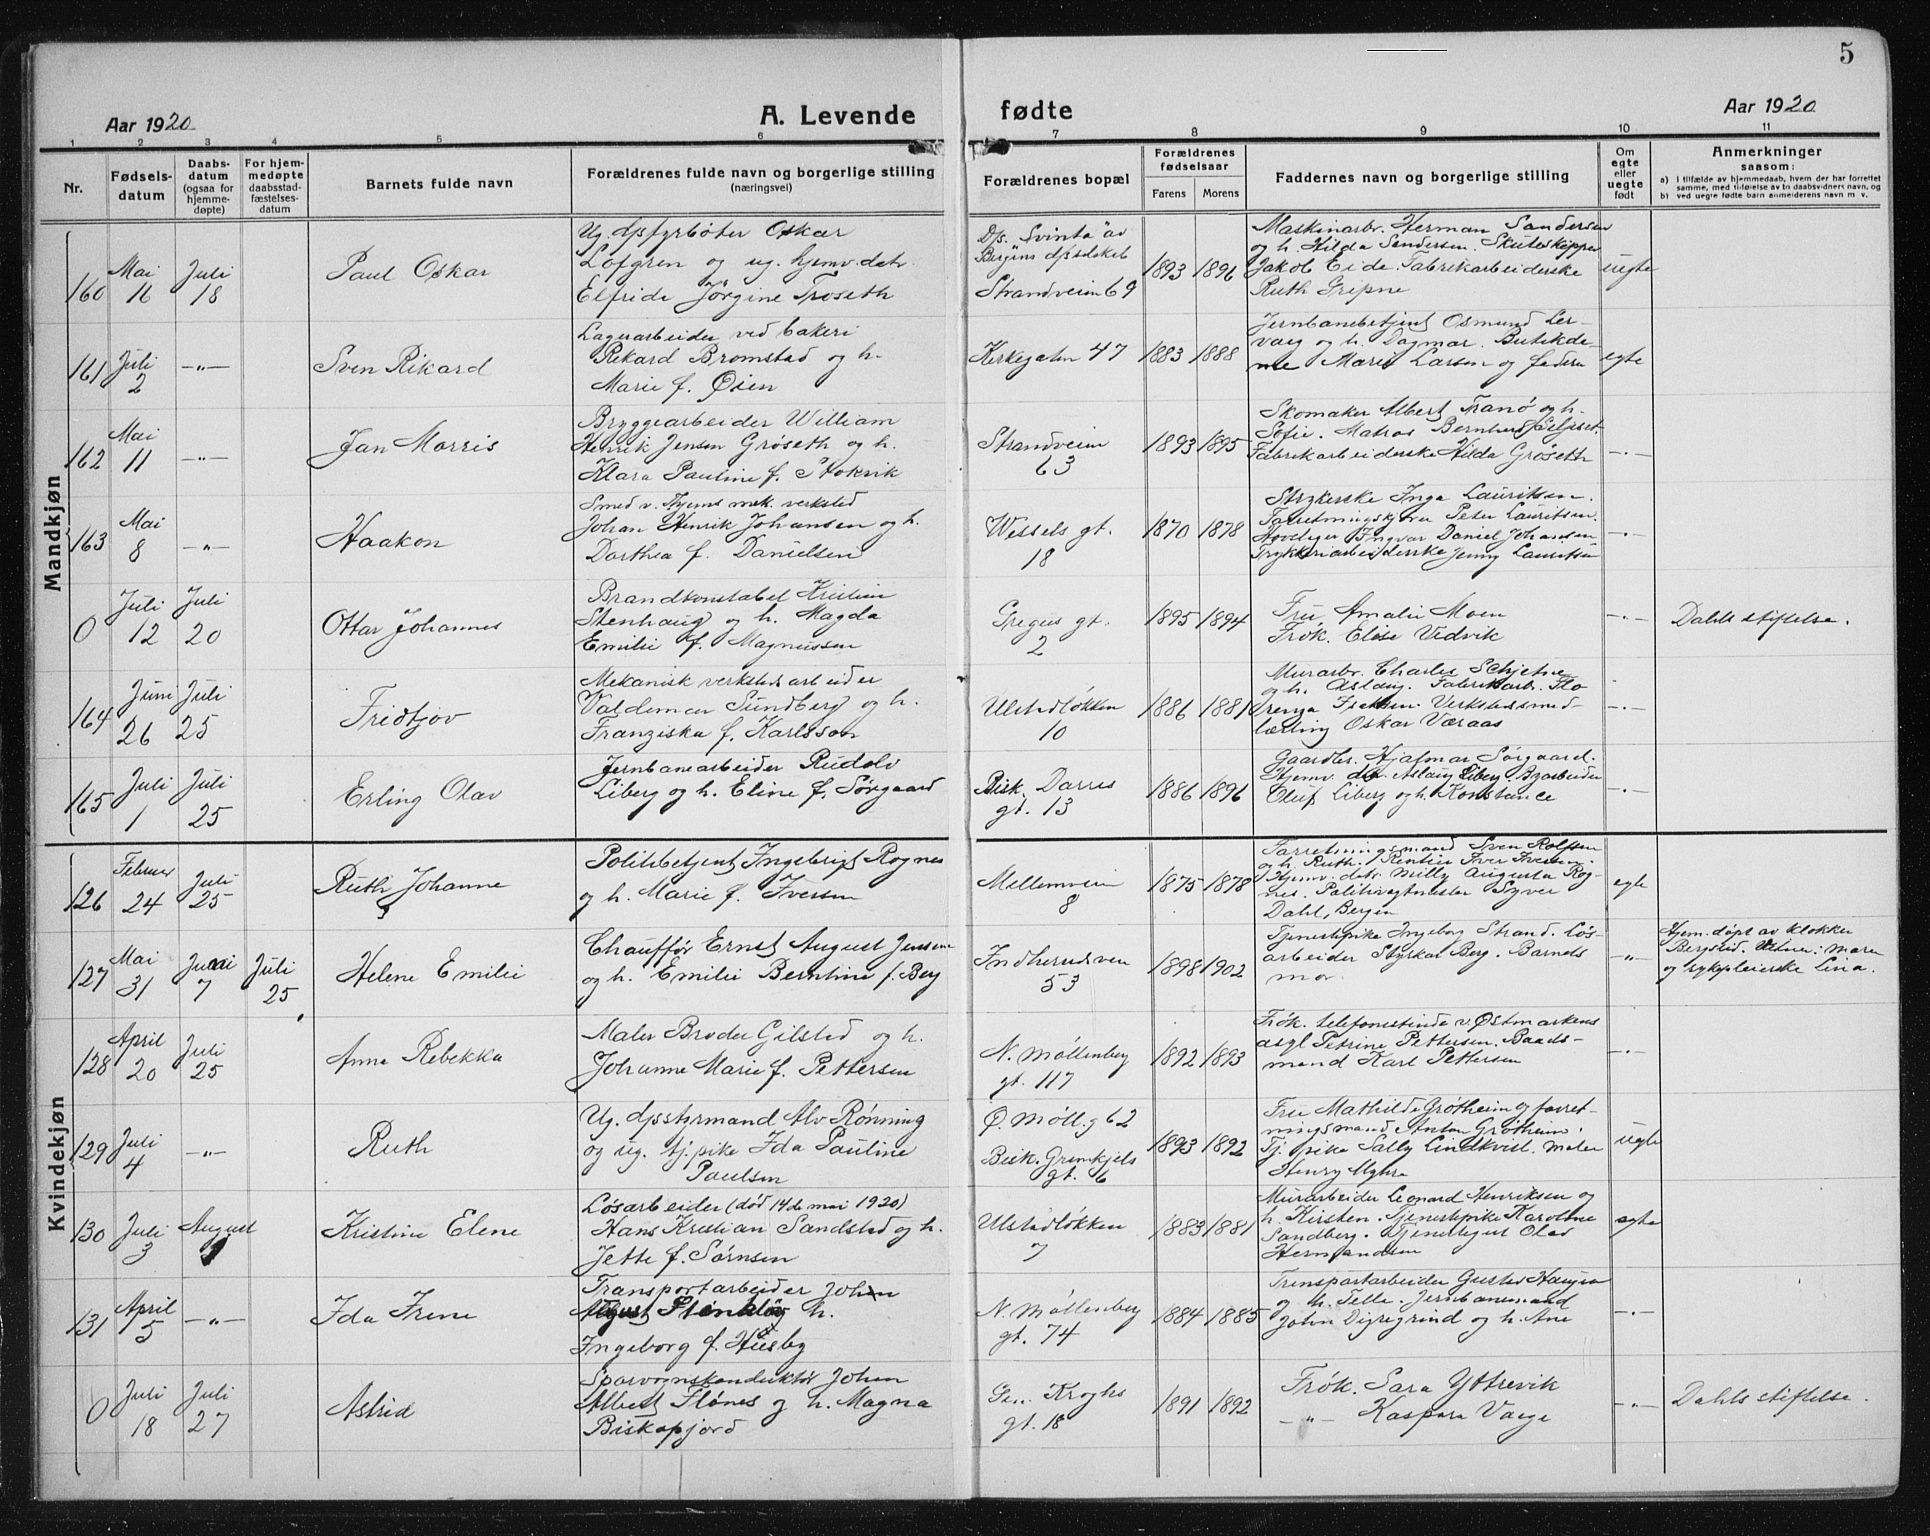 5
Aar 1920
A. Levende fødte
Aar 1920
1 2 3 4 5 6 7 8 9 10 11
Nr.
Fødsels-
datum
Daabs-
datum
(ogsaa for
hjemme-
døpte)
For hjem-
medøpte
daabsstad-
fæstelses-
datum
Barnets fulde navn
Forældrenes fulde navn og borgerlige stilling
(næringsvei)
Forældrenes bopæl
Forældrenes
fødselsaar
Farens
Morens
Faddernes navn og borgerlige stilling
Om
egte
eller
uegte
født
Anmerkninger
saasom:
a) i tilfælde av hjemmedaab, hvem der har forrettet
samme, med tilføielse av to daabsvidners navn, og
b) ved uegte fødte barn anmelderens navn m. v.
Mandkjøn
160
Mai
16
Juli
18
Paul Oskar
Ug. dpsfyrbøter Oskar
Løfgren og ug. hjemv. datr.
Elfride Jørgine Troseth
D/s. "Svinta" av
Bergens dpsselskab
Strandveien 69
1893 1896
Maskinarbr. Herman Sandersen
og h. Hilda Sandersen. Skuteskipper
Jakob Eide. Fabrikarbeiderske
Ruth Gripne
uegte
161
Juli
2
—"—
Sven Rikard
Lagerarbeider ved bakeri
Rikard Bromstad og h.
Marie f. Øien
Kirkegaten 47
1883 1888
Jernbanebetjent Osmund Ler-
vaag og h. Dagmar. Butikda-
me Marie Larsen og faderen
egte
162
Mai
11
—"—
Jan Morris
Bryggearbeider William
Henrik Jensen Grøseth og h.
Klara Pauline f. Hokvik
Strandveien
63
1893 1895
Skomaker Albert Tranø og h.
Sofie. Matros Bernhard
Fabrikarbeiderske Hilda Grøseth
—"—
163
Mai
8
—"—
Haakon
Smed v. Hjems mek. verksted
Johan Henrik Johansen og h.
Dorthea f. Danielsen
Wessels gt.
18
1870 1878
Strykerske Inga Lauritsen.
Forretningskjører Peter Lauritsen.
Ingvar Daniel Johansen
Trykkeriarbeiderske Jenny Lauritsen
—"—
0
Juli
12
Juli
20
Ottar Johannes
Brandkonstabel Kristian
Stenhaug og h. Magda
Emilie f. Magnussen
Gregus gt.
2
1895 1894
Fru Amalie Moen
Frøk. Elise Vedvik
—"—
Dahls stiftelse.
164
Juni
26
Juli
25
Fridtjov
Mekanisk verkstedsarbeider
Valdemar Sundberg og h.
Franziska f. Karlsson
Ulstadløkken
10
1886 1881
Murarbr. Charles Schjetne
og h. Aslaug. Fabrikarb. Flo
renza Isaksen. Verkstedsmed
lærling Oskar Væraas
—"—
165
Juli
1
Juli
25
Erling Olav
Jernbanearbeider Rudolv
Liberg og h. Eline f. Sørgaard
Bisk. Darres
gt. 13
1886 1896
Gaardbr. Hjalmar Sørgaard.
Hjemv. dtr. Aslaug Liberg. Byarbeider
Oluf Liberg og h. Konstance
—"—
Kvindekjøn
126
Februar
24
Juli
25
Ruth Johanne
Politibetjent Ingebrigt Rognes
og h. Marie f. Iversen
Mellemveien
8
1875 1878
Forretningsmand Sven Rolfsen
og h. Ruth. Rentier Iver Iversen.
Hjemv. datr. Milly Augusta Rog-
nes. Politivagtmester Syver
Dahl, Bergen
egte
127
Mai
31
Juni
7
Juli
25
Helene Emilie
Chauffør Ernst August Jensen
og h. Emilie Berntine f. Berg
Indherredsveien
53
1898 1902
Tjenestepike Ingeborg Strand. Løs-
arbeider Styrkar Berg. Barnets
mor
—"—
Hjem.døpt av klokker
Bergstad. Vidner: moren
og sykepleierske Lina.
128
April
20
Juli
25
Anna Rebekka
Maler Broder Gilstad og h.
Johanne Marie f. Pettersen
N. Møllenberg
gt. 117
1892 1893
Frøk. telefonistinde v. Østmarkens
asyl Petrine Pettersen. Baads-
mand Karl Pettersen
—"—
129
Juli
4
—"—
Ruth
Ug. dpsstyrmand Alv Rønning
og ug. tj.pike Ida Pauline
Paulsen
Ø. Møll. g 62
Bisk. Grimkjels
gt. 6
1893 1892
Fru Mathilde Grøtheim og forret-
ningsmand Anton Grøtheim.
Tj. pike Sally Lindkvist. Maler
Henry Myhre
uegte
130
Juli
3
August
1
Kristine Elene
Løsarbeider (død 14de mai 1920)
Hans Kristian Sandstad og h.
Jette f. Sørnsen
Ulstadløkken
7
1883 1881
Murarbeider Leonard Henriksen og
h. Kirsten. Tjenestepike Karoline
Sandberg. Tjenestegut Olav
Hermandsen
egte
131
April
5
—"—
Ida Irene
Transportarbeider Johan
August Stenkløv h.
Ingeborg f. Husby
N. Møllenberg
gt. 74
1884 1885
Transportarbeider Gustav Haugen
og h. Telle. Jernbanemand
John Digregrind og h. Ane
—"—
0
Juli
18
Juli
27
Astrid
Sporvognskonduktør Johan
Albert Flønes og h. Magna
Biskopfjord
Gen. Kroghs
gt. 18
1891 1892
Frøk. Sara Yttrevik
—"— Kaspara Vaage
—"—
Dahls stiftelse.